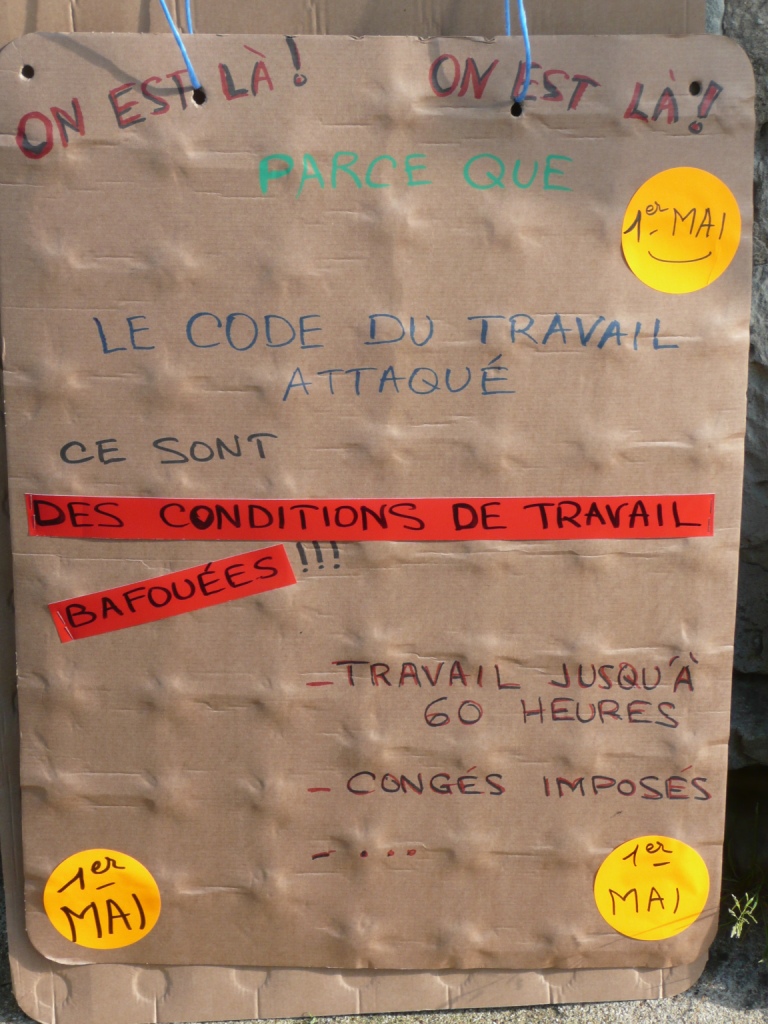 ON EST LÀ! ON EST LÀ!
PARCE QUE
1er MAI
LE CODE DU TRAVAIL
ATTAQUÉ
CE SONT
DES CONDITIONS DE TRAVAIL
BAFOUÉES !!!
- TRAVAIL JUSQU'À
60 HEURES
- CONGÉS IMPOSÉS
- ....
1er
MAI
1er
MAI